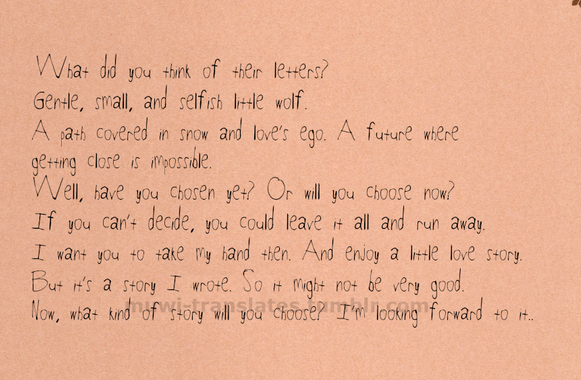 What did you think of their letters?
Gentle, small, and selfish little wolf.
A path covered in snow and love's ego. A future where
getting close is impossible.
Well, have you chosen yet? Or will you choose now?
If you can't decide, you could leave it all and run away.
I want you to take my hand then. And enjoy a little love story.
But it's a story I wrote. So it might not be very good.
muwi-translates.tumblr.com
Now, what kind of story will you choose? I'm looking forward to it..